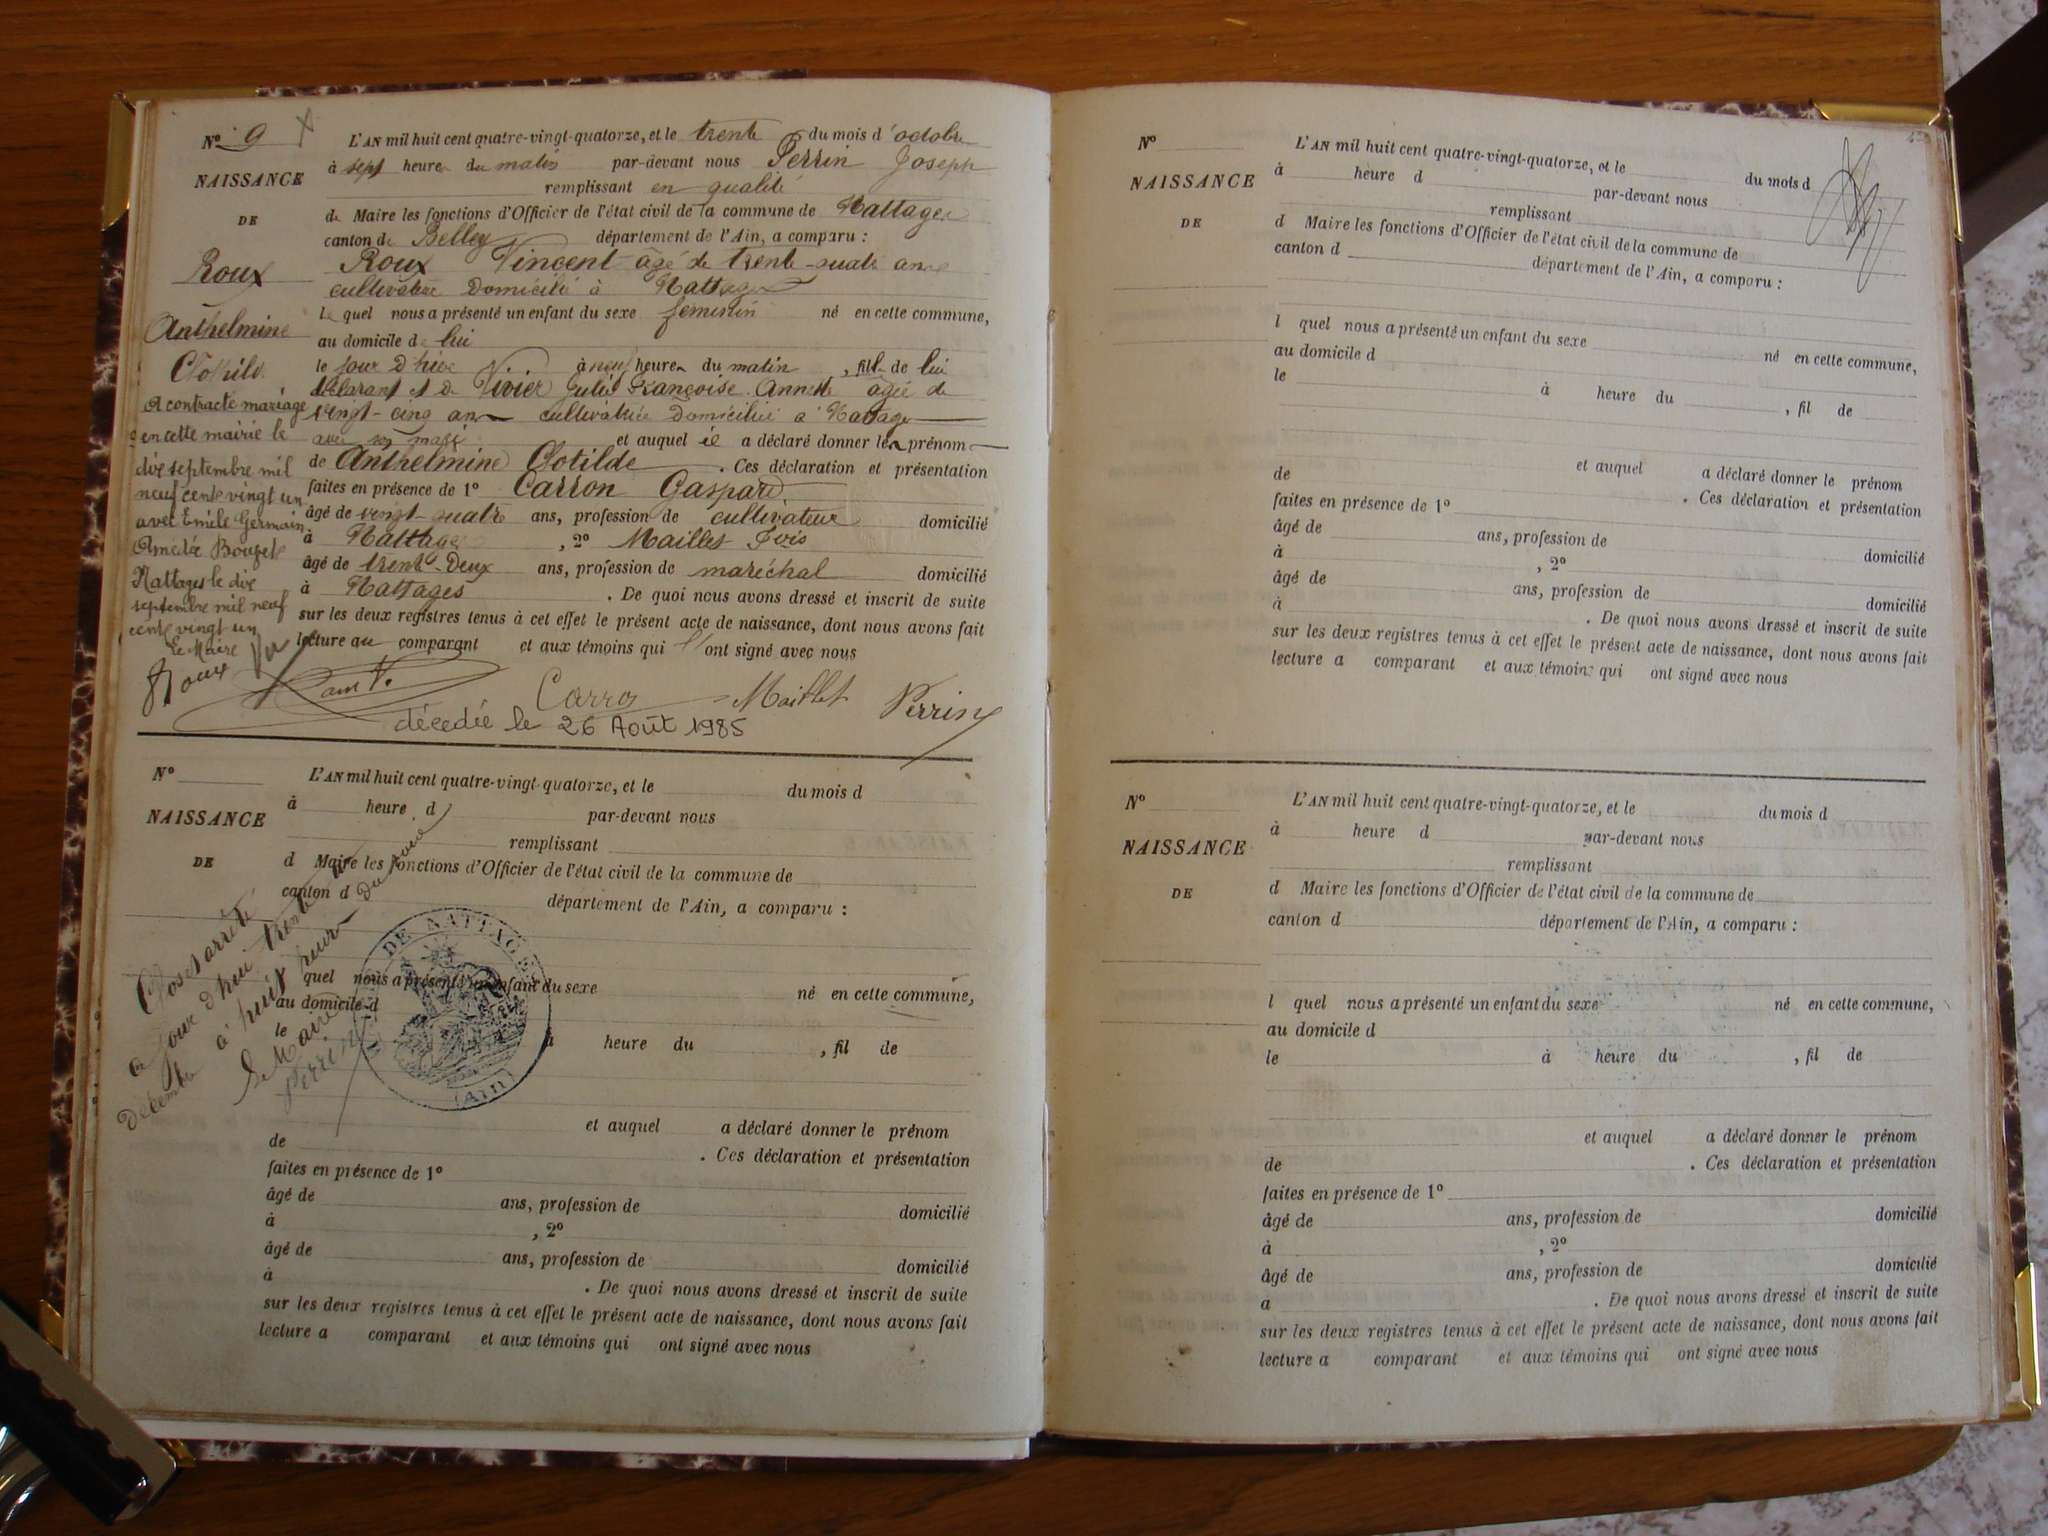 N° 9
NAISSANCE
DE
Roux
Anthelmine
Clotilde
A contracté mariage
en cette mairie le
dix septembre mil
neuf cent vingt un
avec Emile Germain
Amédée
Nattages le dix
septembre mil neuf
cent vingt un
Le Maire
Roux
L'AN mil huit cent quatre-vingt-quatorze, et le trente du mois d'octobre
à sept heures du matin par-devant nous Perrin Joseph
remplissant en qualité
de Maire les fonctions d'Officier de l'état civil de la commune de Nattages
canton de Belley département de l'Ain, a comparu :
Roux Vincent agé de trente-quatre ans
cultivateur domicilié à Nattages
lequel nous a présenté un enfant du sexe féminin né en cette commune,
au domicile de lui
le jour d'hier à neuf heures du matin, fille de lui
déclarant et de Vivier Julie Françoise Annette agée de
vingt-cinq ans cultivatrice domiciliée à Nattages
avec son mari et auquel il a déclaré donner les prénoms
de Anthelmine Clotilde. Ces déclaration et présentation
faites en présence de 1° Carron Gaspard
âgé de vingt-quatre ans, profession de cultivateur domicilié
à Nattages, 2° Maillet
âgé de trente-deux ans, profession de maréchal domicilié
à Nattages. De quoi nous avons dressé et inscrit de suite
sur les deux registres tenus à cet effet le présent acte de naissance, dont nous avons fait
lecture au comparant et aux témoins qui l'ont signé avec nous
Roux V. Carron Maillet Perrin
décedée le 26 Août 1985
N°
NAISSANCE
DE
L'AN mil huit cent quatre-vingt-quatorze, et le du mois d
à heure d par-devant nous
remplissant
d Maire les fonctions d'Officier de l'état civil de la commune de
canton d département de l'Ain, a comparu :
quel nous a présenté un enfant du sexe né en cette commune,
au domicile d
le à heure du , fil de
et auquel a déclaré donner le prénom
de . Ces déclaration et présentation
faites en présence de 1°
âgé de ans, profession de domicilié
à , 2°
âgé de ans, profession de domicilié
à . De quoi nous avons dressé et inscrit de suite
sur les deux registres tenus à cet effet le présent acte de naissance, dont nous avons fait
lecture a comparant et aux témoins qui ont signé avec nous
Clos et arrêté
ce jour d'hui trente un
décembre à huit heures du soir
Le Maire
Perrin
DE NATTAGES
(AIN)
N°
NAISSANCE
DE
L'AN mil huit cent quatre-vingt-quatorze, et le du mois d
à heure d par-devant nous
remplissant
d Maire les fonctions d'Officier de l'état civil de la commune de
canton d département de l'Ain, a comparu :
l quel nous a présenté un enfant du sexe né en cette commune,
au domicile d
le à heure du , fil de
et auquel a déclaré donner le prénom
de . Ces déclaration et présentation
faites en présence de 1°
âgé de ans, profession de domicilié
à , 2°
âgé de ans, profession de domicilié
à . De quoi nous avons dressé et inscrit de suite
sur les deux registres tenus à cet effet le présent acte de naissance, dont nous avons fait
lecture a comparant et aux témoins qui ont signé avec nous
N°
NAISSANCE
DE
L'AN mil huit cent quatre-vingt-quatorze, et le du mois d
à heure d par-devant nous
remplissant
d Maire les fonctions d'Officier de l'état civil de la commune de
canton d département de l'Ain, a comparu :
l quel nous a présenté un enfant du sexe né en cette commune,
au domicile d
le à heure du , fil de
et auquel a déclaré donner le prénom
de . Ces déclaration et présentation
faites en présence de 1°
âgé de ans, profession de domicilié
à , 2°
âgé de ans, profession de domicilié
à . De quoi nous avons dressé et inscrit de suite
sur les deux registres tenus à cet effet le présent acte de naissance, dont nous avons fait
lecture a comparant et aux témoins qui ont signé avec nous